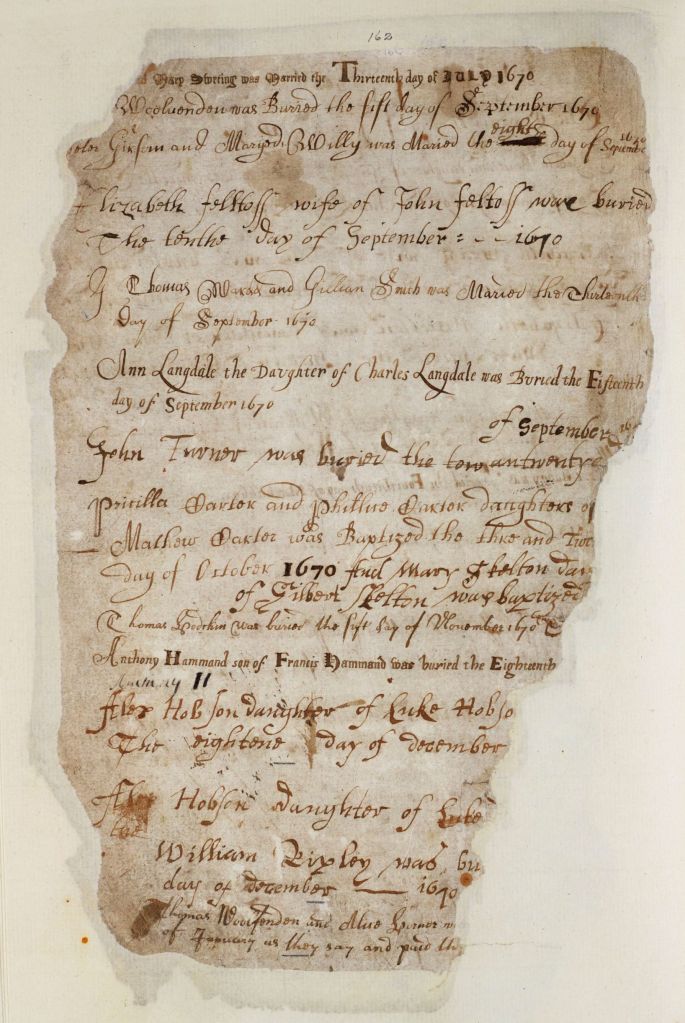 162
Mary Sweting was Married the Thirteenth day of JULY 1670
Woolvenden was Buried the fift day of September 1670
eighth
Girsom and Maryed Willy was Maried the day of September 1670
Elizabeth feltoss wife of John feltoss was buried
The tenthe day of September : - - 1670
Thomas and Gillian Smith was Maried the Thirteenth
day of September 1670
Ann Langdale the Daughter of Charles Langdale was Buried the Fifteenth
day of September 1670
of September
John Turner was buried the tow antwenty
Pricilla Carter and Phillis Carter daughters of
Mathew Carter was Baptized the thre and Twe
day of October 1670 And Mary Skelton dau
of Gilbert Skelton was baptized
Thomas Hodchin was buried the fift day of November 1670
Anthony Hammand son of Francis Hammand was buried the Eighteenth
11
Alex Hobson daughter of Luke Hobso
The eightene day of december
Alex Hobson daughter of Luke
the
William Ripley was bu
day of december 1670
Thomas Woolfenden and Alue Horner w
of January as they say and paid the